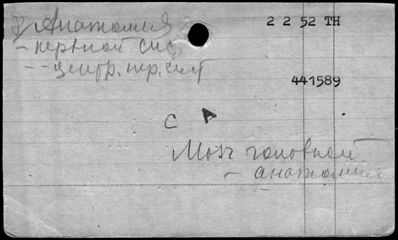 У Анатомия
2 2 52 TH
- нервной сис.
-- центр. нер. сист
441589
С А
Мозг головной
- анатомия